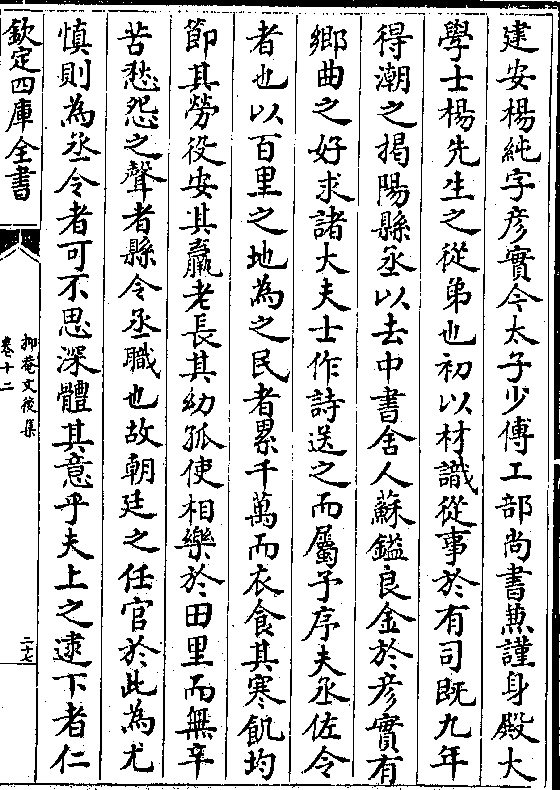 建安楊純字彦實今太子少傅工部尚書兼謹身殿大
學士楊先生之從弟也初以材識從事於有司既九年
得潮之揭陽縣丞以去中書舍人蘇鎰良金於彦實有
鄉曲之好求諸大夫士作詩送之而屬予序夫丞佐令
者也以百里之地為之民者累千萬而衣食其寒飢均
節其勞役安其羸老長其幼孤使相樂於田里而無辛
苦愁怨之聲者縣令丞職也故朝廷之任官於此為尤
慎則為丞令者可不思深體其意乎夫上之逮下者仁
欽定四庫全書
抑菴文後集
卷十二
二十七